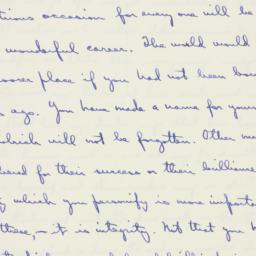 tious occasion for every one will be
wonderful career. The world would
poorer place if you had not been bor
s ago. You have made a name for your
which will not be forgotten. Other me
bered for their success or their brillianc
y which you personify is more importa
these, – it is integrity. Not that you h